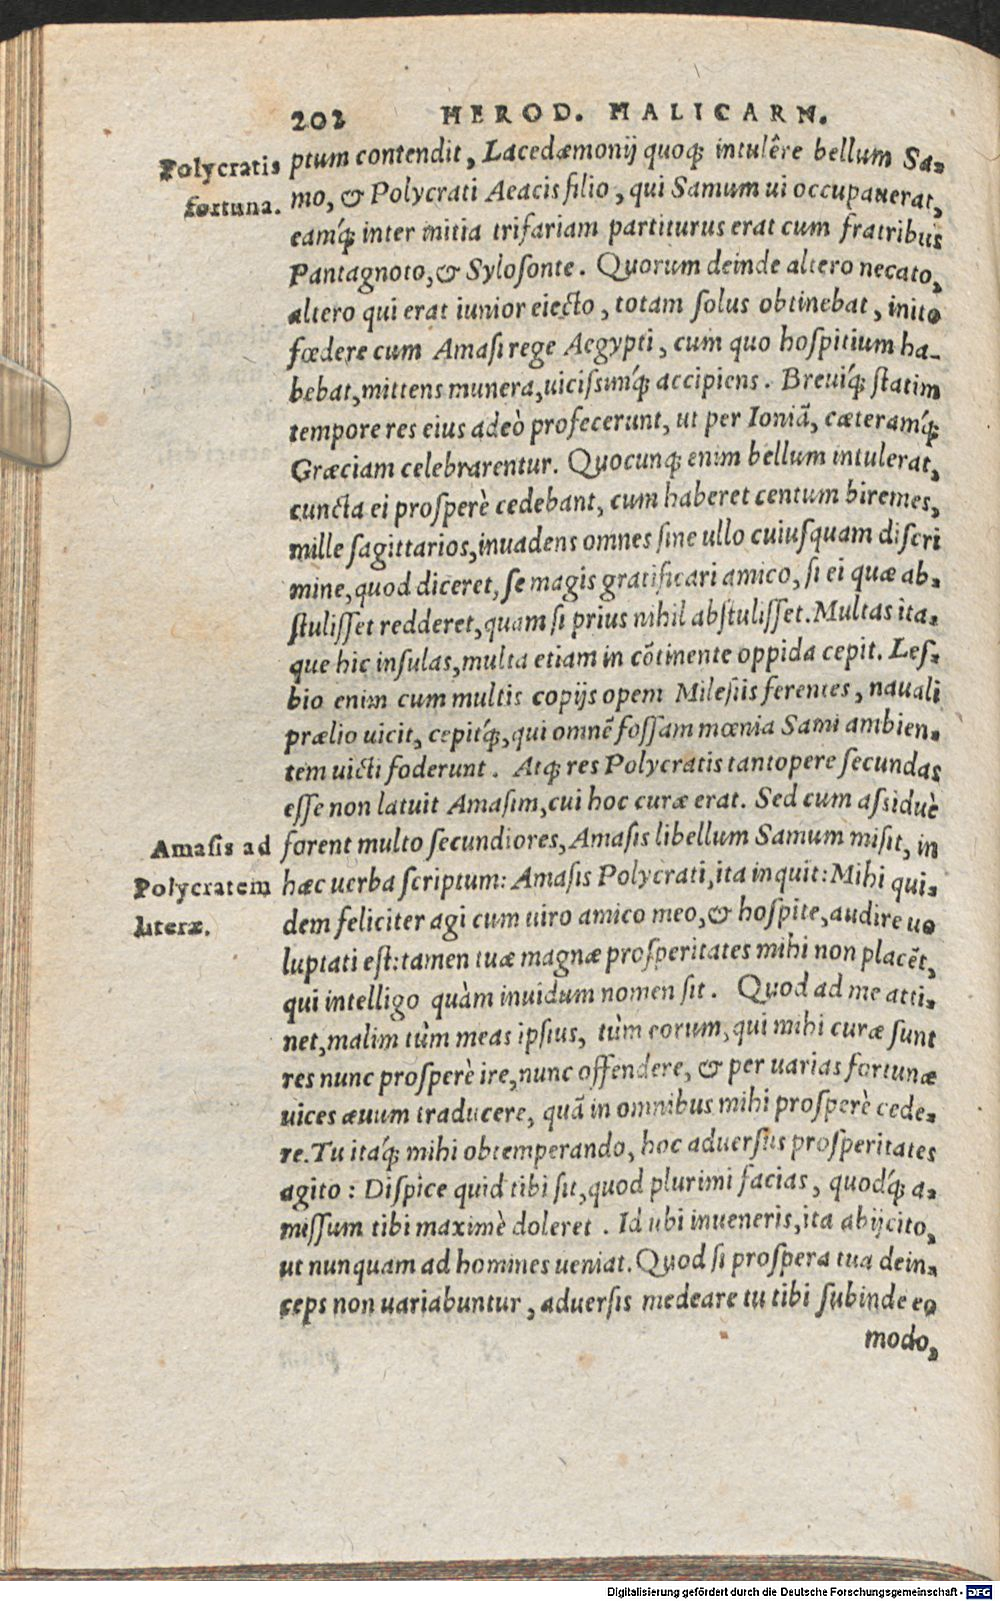 202 HEROD. HALICARN.
Polycratis
fortuna.
ptum contendit, Lacedæmonij quoq; intulêre bellum Sa-
mo, & Polycrati Aeacis filio, qui Samum ui occupauerat,
eamq́; inter initia trifariam partiturus erat cum fratribus
Pantagnoto, & Sylosonte. Quorum deinde altero necato,
altero qui erat iunior eiecto, totam solus obtinebat, inito
fœdere cum Amasi rege Aegypti, cum quo hospitium ha-
bebat, mittens munera, uicissimq́; accipiens. Breuiq́; statim
tempore res eius adeò profecerunt, ut per Ioniã, cæteramq́;
Græciam celebrarentur. Quocunq; enim bellum intulerat,
cuncta ei prosperè cedebant, cum haberet centum biremes,
mille sagittarios, inuadens omnes sine ullo cuiusquam discri
mine, quod diceret, se magis gratificari amico, si ei quæ ab-
stulisset redderet, quam si prius nihil abstulisset. Multas ita-
que hic insulas, multa etiam in cõtinente oppida cepit. Les-
bio enim cum multis copijs opem Milesiis ferentes, nauali
prælio uicit, cepitq́;, qui omnẽ fossam mœnia Sami ambien-
tem uicti foderunt. Atq; res Polycratis tantopere secundas
esse non latuit Amasim, cui hoc curæ erat. Sed cum assiduè
Amasis ad
Polycratem
literæ.
forent multo secundiores, Amasis libellum Samum misit, in
hæc uerba scriptum: Amasis Polycrati, ita inquit: Mihi qui-
dem feliciter agi cum uiro amico meo, & hospite, audire uo
luptati est: tamen tuæ magnæ prosperitates mihi non placẽt,
qui intelligo quàm inuidum nomen sit. Quod ad me atti-
net, malim tùm meas ipsius, tùm eorum, qui mihi curæ sunt
res nunc prosperè ire, nunc offendere, & per uarias fortunæ
uices æuum traducere, quã in omnibus mihi prosperè cede-
re. Tu itaq́; mihi obtemperando, hoc aduersus prosperitates
agito: Dispice quid tibi sit, quod plurimi facias, quodq́; a-
missum tibi maximè doleret. Id ubi inueneris, ita abijcito,
ut nunquam ad homines ueniat. Quod si prospera tua dein-
ceps non uariabuntur, aduersis medeare tu tibi subinde eo
modo,
Digitalisierung gefördert durch die Deutsche Forschungsgemeinschaft - DFG